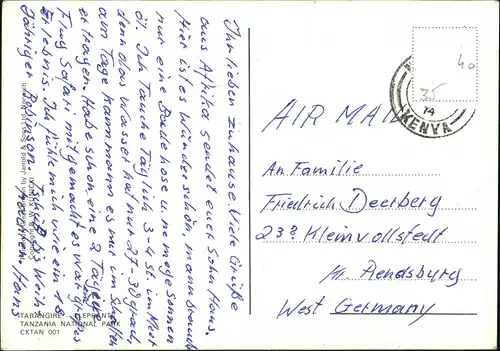 Ihr lieben zuhause. Viele Grüße
aus Afrika sendet euch Sohn Hans.
Hier ist es wunderschön, man braucht
nur eine Badehose u. ne menge sonnen
öl. Ich Tauche Täglich 3-4 St im Meer
denn das Wasser hat nur 27-30 grad,
am Tage kann man es nur im Schatten
ertragen. Habe schon eine 2 Tägige
Flug Safari mitgemacht es war großes
Erlebnis. Ich fühle mich wie ein 18
Jähriger Robinson.
Joachim. Hans
AIR MAIL
An Familie
Friedrich Deerberg
23?? Kleinvollstedt
Kr. Rendsburg
West Germany
35
40
74
KENYA
TARANGIRE ELEPHANTS
TANZANIA NATIONAL PARK
CKTAN 001